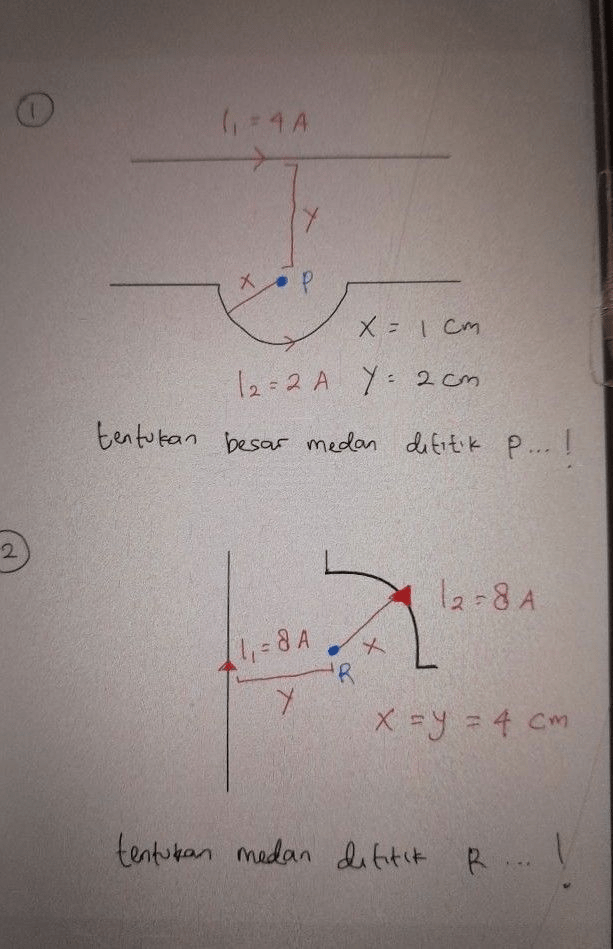 1
I₁ = 4 A
y
x P
x = 1 cm
I₂ = 2 A y = 2 cm
tentukan besar medan dititik P...!
2
I₂ = 8 A
I₁ = 8 A x
R
y
x = y = 4 cm
tentukan medan dititik R ...!